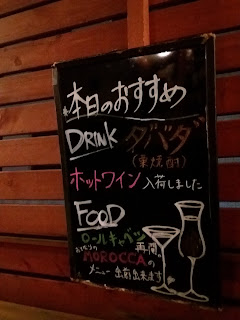 本日のおすすめ
DRINK タバダ
(栗焼酎)
ホットワイン 入荷しました
FOOD
ロールキャベツ 再開。
おとなりの
MOROCCAの
メニュー 出前出来ます